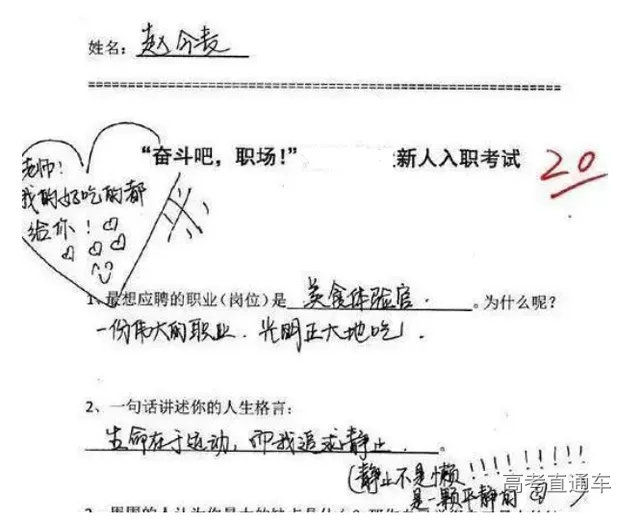 姓名：赵今麦
"奋斗吧，职场！" 新人入职考试
20
老师！
我的好吃的都
给你！
1、最想应聘的职业（岗位）是 美食体验官. 。为什么呢？
一份伟大的职业. 光明正大地吃！
2、一句话讲述你的人生格言：
生命在于运动，而我追求静止. 。
（静止不是懒！！！！！！！！
是一颗平静的心）
高考直通车